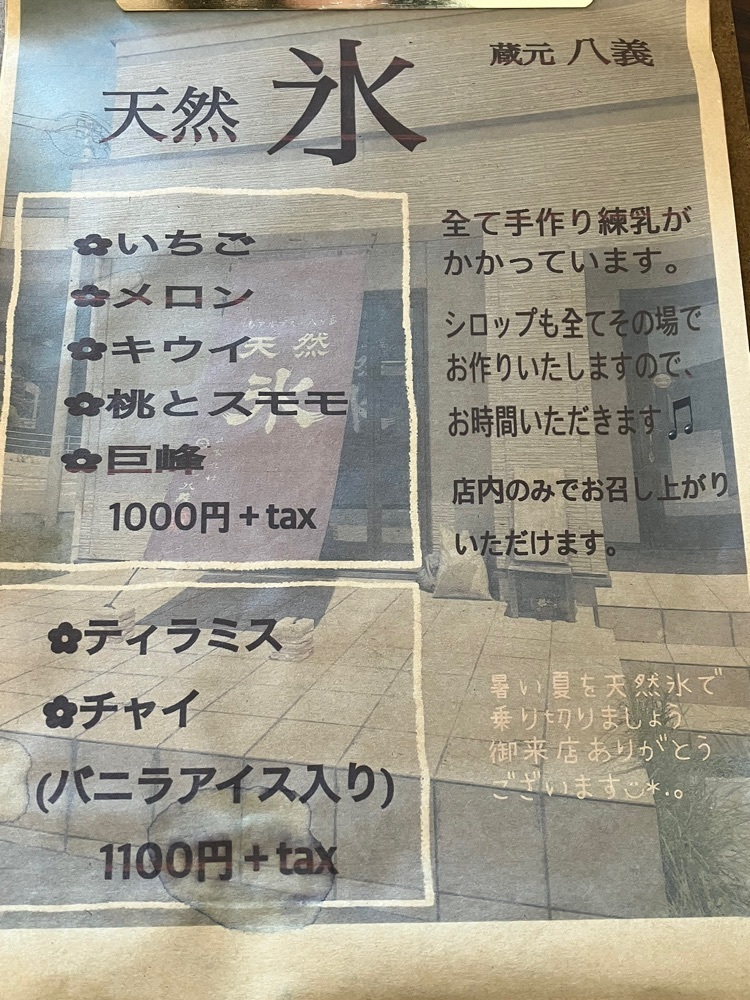 蔵元 八義
天然 氷
✿いちご
✿メロン
✿キウイ
✿桃とスモモ
✿巨峰
1000円+tax
全て手作り練乳が
かかっています。
シロップも全てその場で
お作りいたしますので、
お時間いただきます🎵
店内のみでお召し上がり
いただけます。
天然
氷
✿ティラミス
✿チャイ
(バニラアイス入り)
1100円+tax
暑い夏を天然氷で
乗り切りましょう
御来店ありがとう
ございます